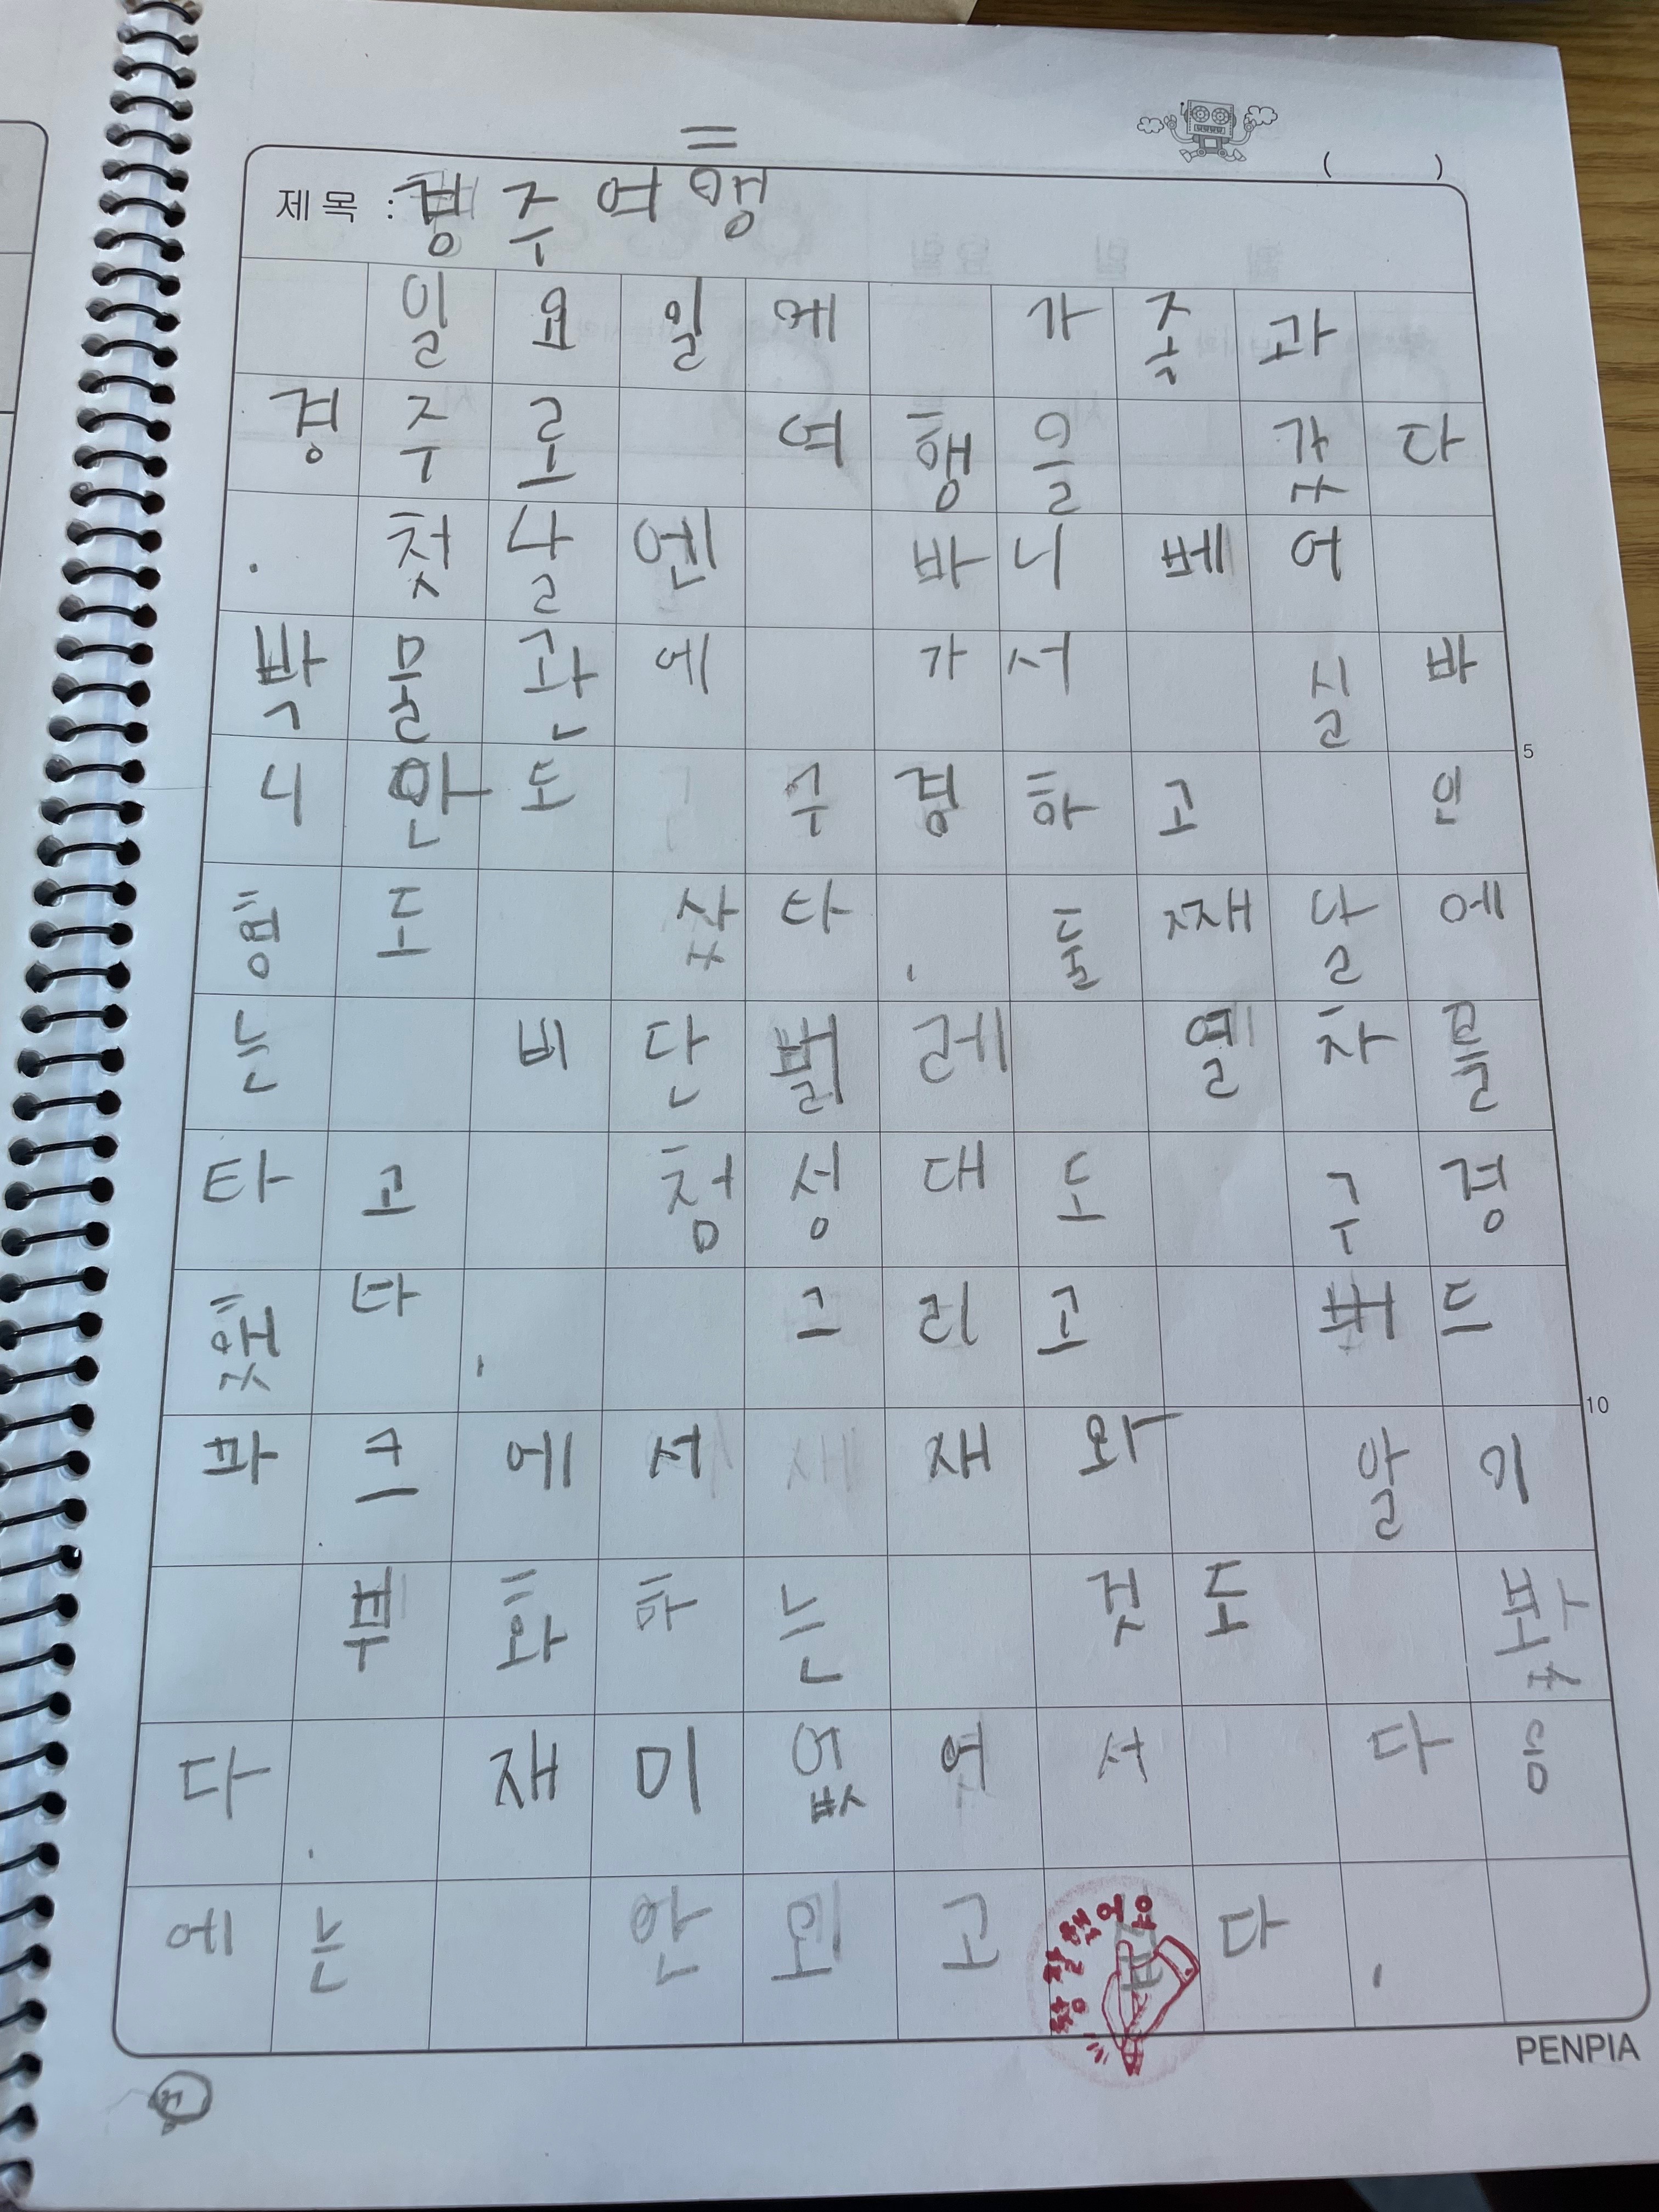 ( )
제목 : 경주여행
일요일에 가족과
경주로 여행을 갔다
. 첫날엔 바니베어
박물관에 가서 실바
니안도 구경하고 인
형도 샀다. 둘째날에
는 비단벌레 열차를
타고 첨성대도 구경
했다. 그리고 버드
파크에서 재와 알기
부화하는 것도 봤
다. 재미없어서 다음
에는 안 다.
5
10
참 잘했어요
PENPIA